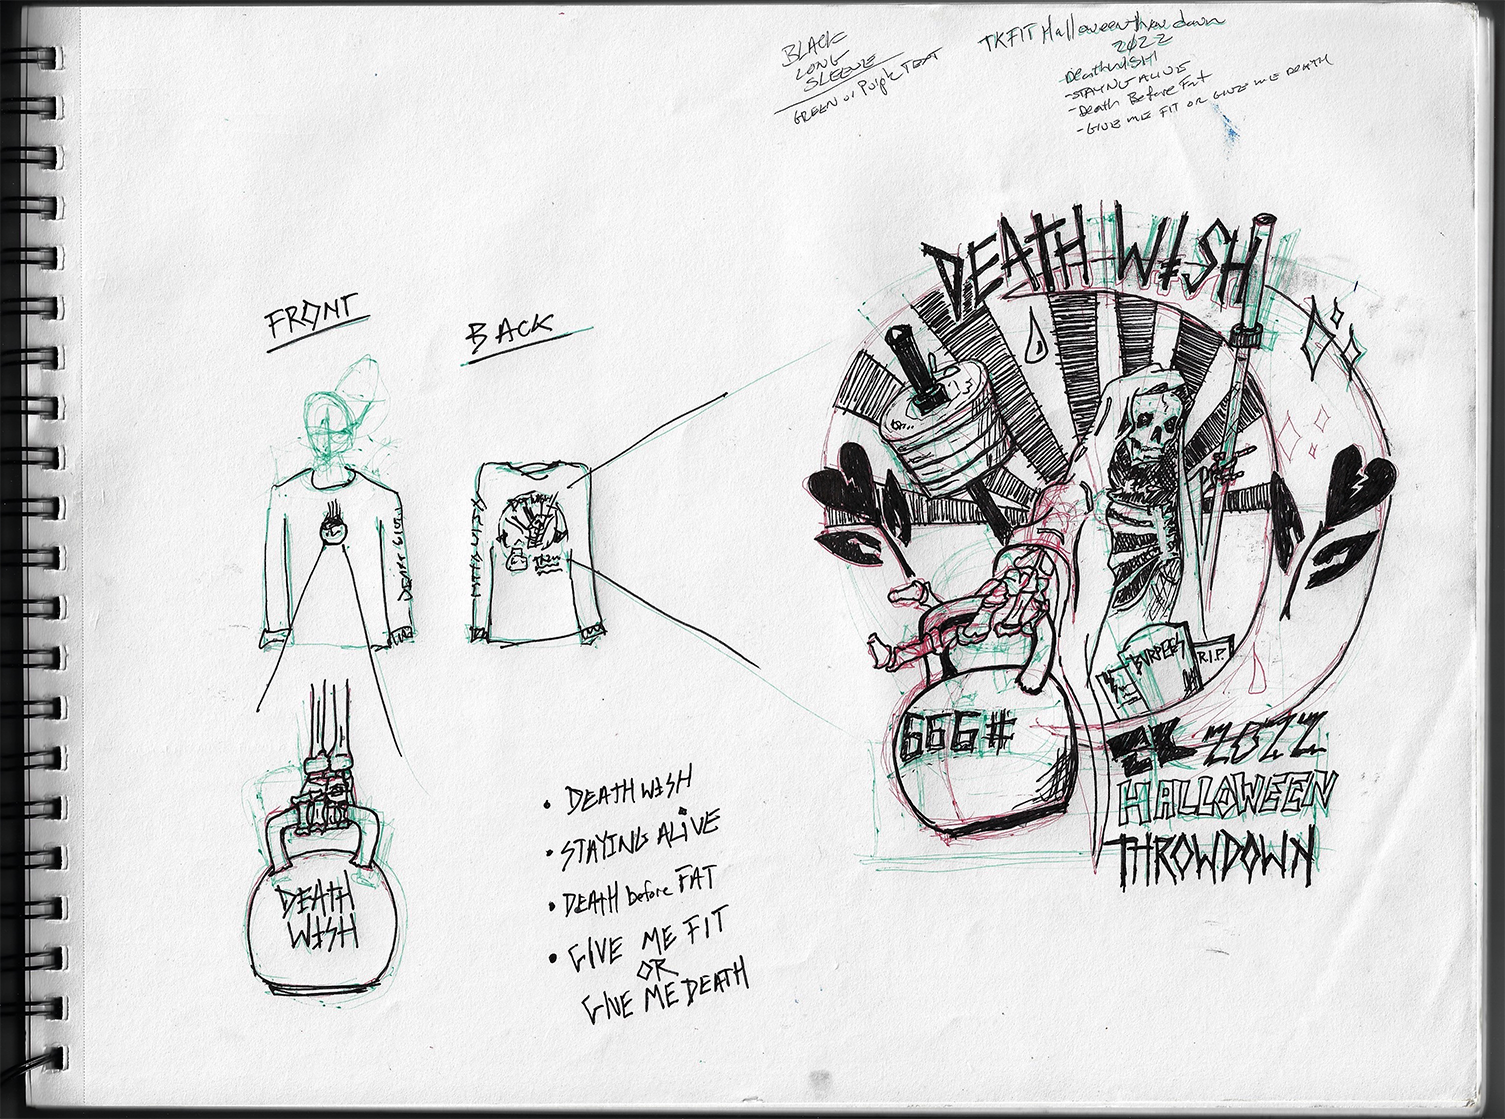 BLACK
LONG
SLEEVE
GREEN or Purple TEXT
TKFIT Halloween throw down
2022
DeathWISH
-STAYING ALIVE
-Death Before Fat
-GIVE ME FIT OR GIVE ME DEATH
FRONT
BACK
DEATH WISH
BURPEES
R.I.P.
666#
2022
HALLOWEEN
THROWDOWN
DEATH
WISH
• DEATH WISH
• STAYING ALIVE
• DEATH before FAT
• GIVE ME FIT
OR
GIVE ME DEATH